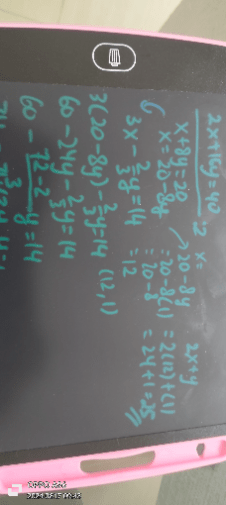 2x+16y=40
÷2
x+8y=20
x=20-8y
3x - 2/3 y = 14
3(20-8y) - 2/3 y = 14
60 - 24y - 2/3 y = 14
60 - 72-2/3 y = 14
x=
20-8y
=20-8(1)
=20-8
=12
(12,1)
2x+y
=2(12)+(1)
=24+1=25//